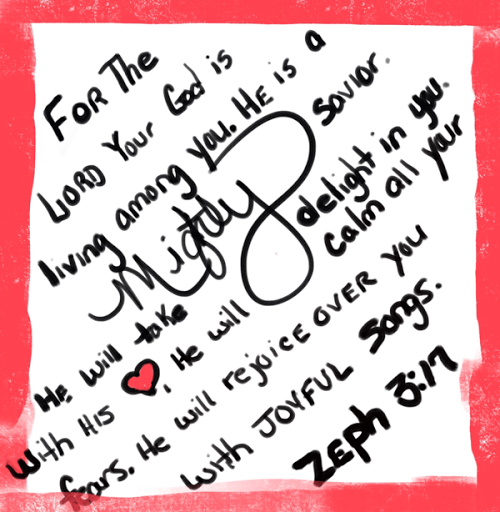 FOR The
LORD Your God is
living among you. HE is a
Mighty Savior.
He will take delight in you.
With His ❤, He will calm all your
fears. He will rejoicE OVER you
with JOYFUL Songs.
ZEph 3:17